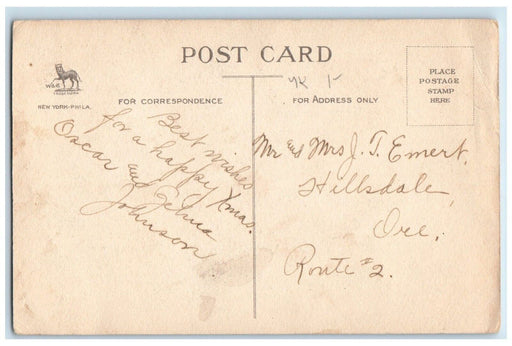 POST CARD
W&B
NEW YORK-PHILA.
FOR CORRESPONDENCE
FOR ADDRESS ONLY
PLACE
POSTAGE
STAMP
HERE
Best wishes
for a happy Xmas.
Oscar and
Johnson
Mr and Mrs J. T. Emert,
Hillsdale,
Ore.
Route #2.